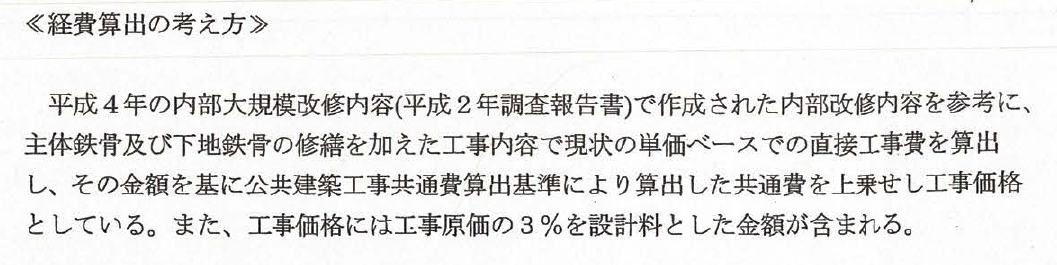 ≪経費算出の考え方≫
平成４年の内部大規模改修内容(平成２年調査報告書)で作成された内部改修内容を参考に、
主体鉄骨及び下地鉄骨の修繕を加えた工事内容で現状の単価ベースでの直接工事費を算出
し、その金額を基に公共建築工事共通費算出基準により算出した共通費を上乗せし工事価格
としている。また、工事価格には工事原価の３％を設計料とした金額が含まれる。